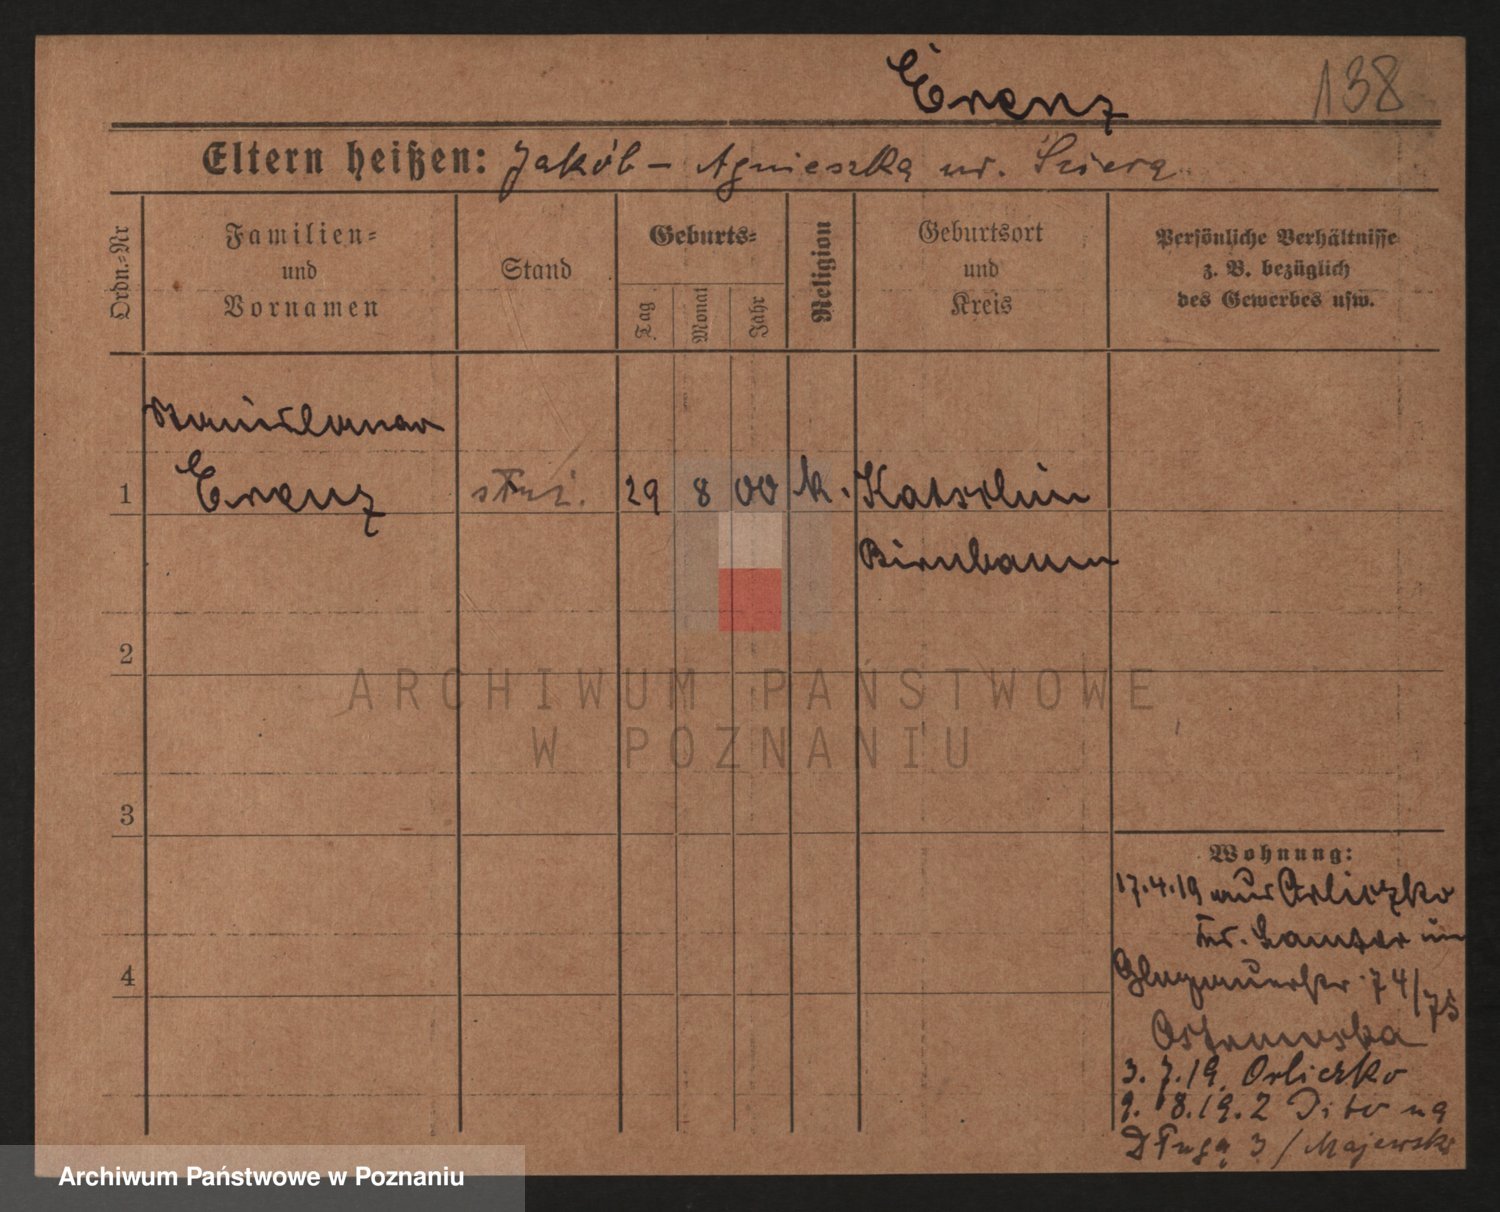 Erenz
138
Eltern heißen: Jakób – Agnieszka ur.
Ordn.-Nr
Familien-
und
Vornamen
Stand
Geburts-
Tag
Monat
Jahr
Religion
Geburtsort
und
Kreis
Persönliche Verhältnisse
z. B. bezüglich
des Gewerbes usw.
Stanislawa
1 Erenz służ. 29 8 00 k. Katschlin
Birnbaum
2
3
4
ARCHIWUM PAŃSTWOWE
W POZNANIU
Wohnung:
17.4.19 aus Orliczko
Kr. Samter in
Glogauerstr. 74/75
3. 7. 19. Orliczko
9. 8. 19. z Dito na
Długą 3 / Majewski
Archiwum Państwowe w Poznaniu